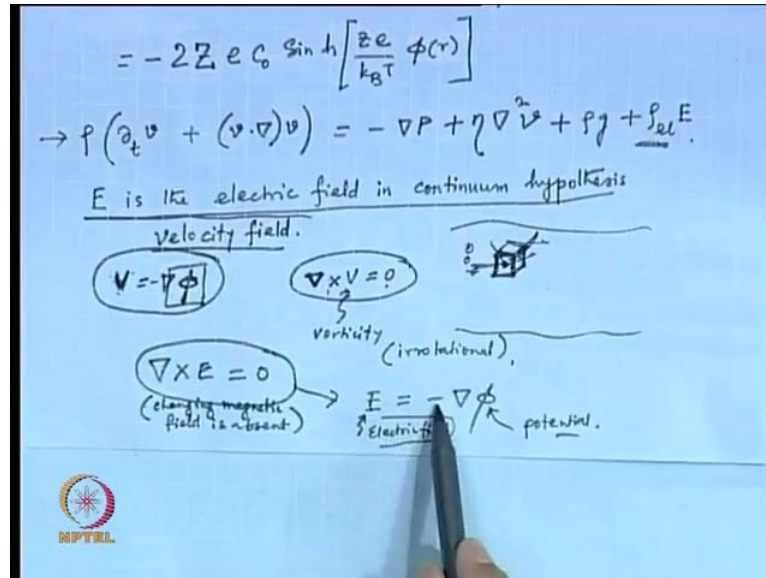 = - 2 Z e C₀ Sin h [ ze / k_B T φ(r) ]
→ ρ ( ∂_t v + (v·∇) v ) = - ∇P + η ∇² v + ρg + ρ_el E.
E is the electric field in continuum hypothesis
velocity field.
V = -∇ φ   ∇ × V = 0
vorticity
(irrotational).
∇ × E = 0
(changing magnetic field is absent)
E = - ∇ φ
potential.
NPTEL